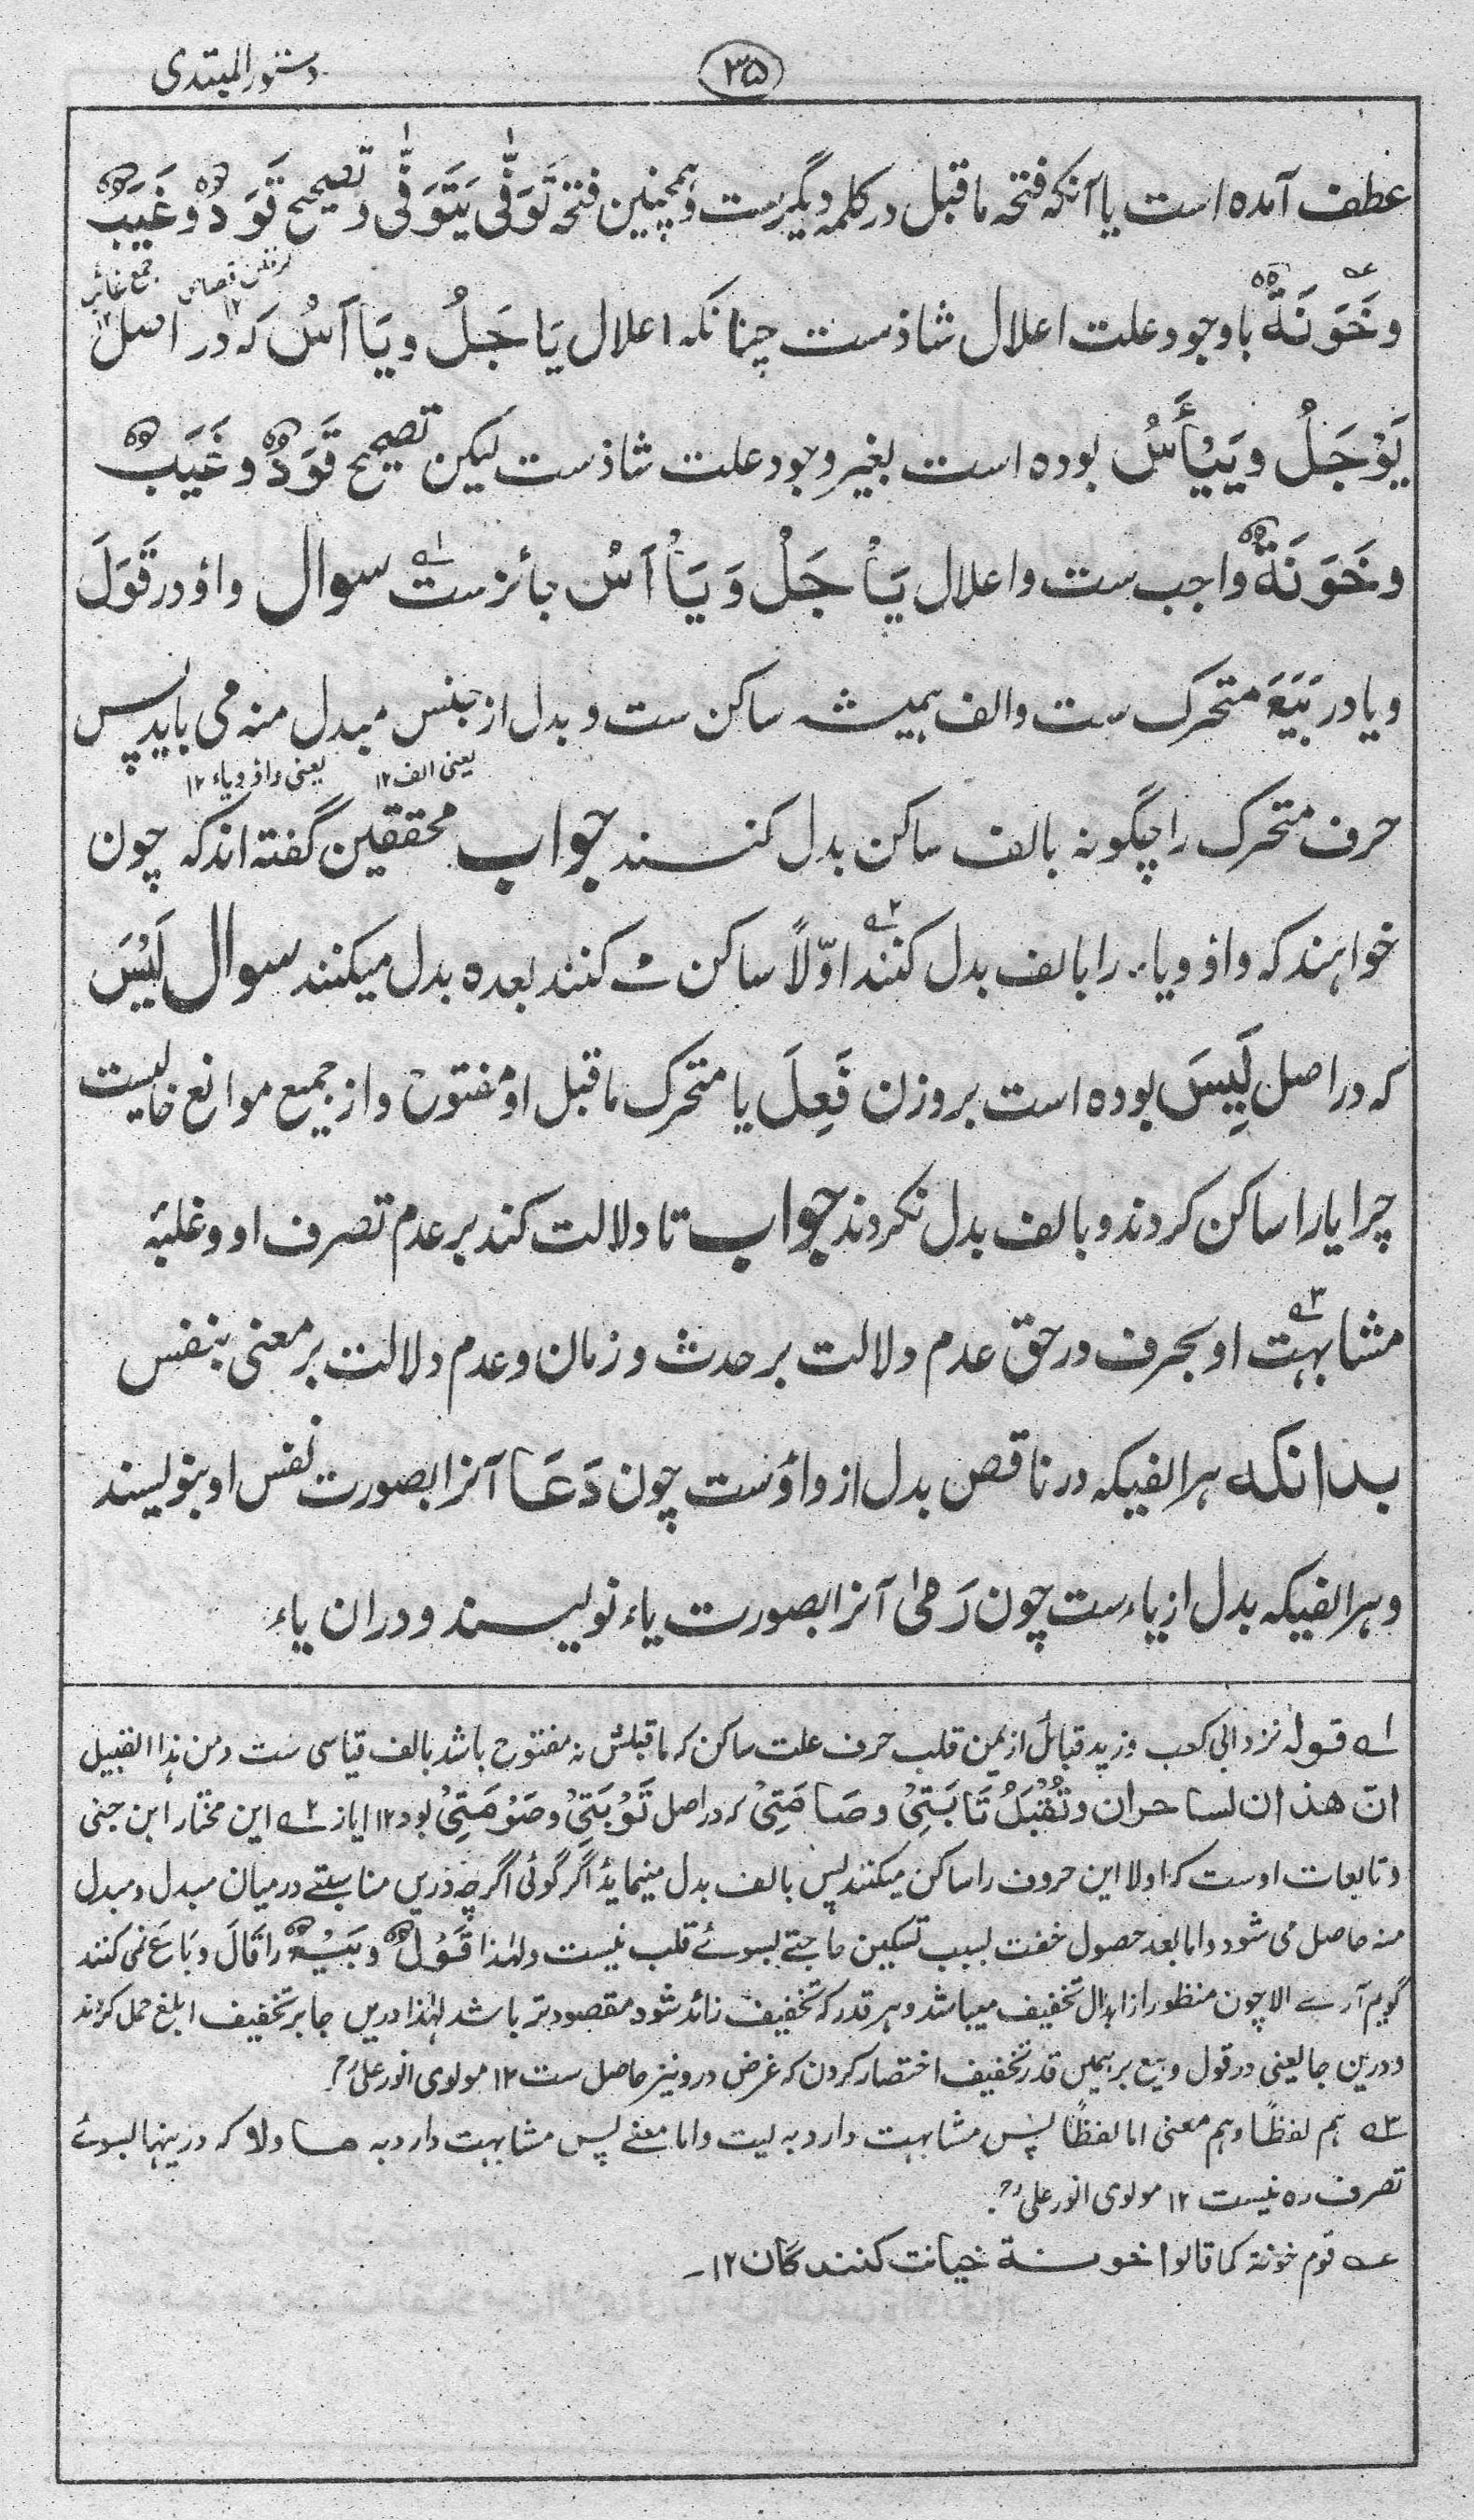 دستور المبتدی
۳۵
عطف آمده است یا آنکه فتحه ماقبل در کلمه دیگرست و همچنین فتحه تَوَفّٰی یَتَوَفّٰی و تصحیح قَوَدٌ و غَیَبٌ
لنفس قصاص ۱۲ جمع غائب ۱۲
و خَوَنَةٌ با وجود علت اعلال شاذست چنانکه اعلال یَاجَلُ و یَاآسُ که در اصل
یَوْجَلُ و یَیْأَسُ بوده است بغیر وجود علت شاذست لیکن تصحیح قَوَدٌ و غَیَبٌ
و خَوَنَةٌ واجب ست و اعلال یَاْجَلُ وَ یَاْآسُ جائزست ۱ سوال واؤ در قَوَلَ
و یا در بَیَعَ متحرک ست و الف همیشه ساکن ست و بدل از جنس مبدل منه می باید پس
یعنی الف ۱۲ یعنی واؤ و یاء ۱۲
حرف متحرک را چگونه بالف ساکن بدل کنند جواب محققین گفته اند که چون
خواهند که واؤ و یاء را بالف بدل کنند ۲ اوّلاً ساکن کنند بعده بدل میکنند سوال لَیْسَ
که در اصل لَیِسَ بوده است بروزن فَعِلَ یا متحرک ماقبل او مفتوح و از جمیع موانع خالیست
چرا یا را ساکن کردند و بالف بدل نکردند جواب تا دلالت کند بر عدم تصرف او و غلبۂ
مشابهت ۳ او بحرف در حق عدم دلالت بر حدث و زمان و عدم دلالت بر معنی بنفس
بدانکه هر الفیکه در ناقص بدل از واؤست چون دَعَا آنرا بصورت نفس او بنویسند
و هر الفیکه بدل از یاء ست چون رَمٰی آنرا بصورت یاء نویسند و دران یاء
۱ قوله نزد ابی کعب و زید قبائل از یمن قلب حرف علت ساکن که ماقبلش مفتوح باشد بالف قیاسی ست و من هذا القبیل
انّ هذان لساحران و تُقْبَلُ تَابَتِیْ و صَامَتِیْ که در اصل تَوْبَتِیْ و صَوْمَتِیْ بود ۱۲ ایاز ۲ این مختار ابن جنی
و تابعات اوست که اولا این حروف را ساکن میکنند پس بالف بدل مینماید اگر گوئی اگرچه درین مناسبتے درمیان مبدل و مبدل
منه حاصل می شود و اما بعد حصول خفت بسبب تسکین حاجتے بسوئے قلب نیست و لهٰذا قَوْلٌ و بَیْعٌ را قَالَ و بَاعَ نمی کنند
گویم آرے الا چون منظور از ابدال تخفیف میباشد و هر قدر که تخفیف زائد شود مقصودتر باشد لهٰذا درین جا بر تخفیف ابلغ حمل کردند
و درین جا یعنی در قول و بیع بر همین قدر تخفیف اختصار کردن که غرض درو نیز حاصل ست ۱۲ مولوی انور علی رح
۳ هم لفظًا و هم معنی اما لفظًا پس مشابهت دارد به لیت و اما معنے پس مشابهت دارد به ما و لا که در ینها بسوئے
تصرف ره نیست ۱۲ مولوی انور علی رح
عه قوم خونة کما قالوا خونة خیانت کنندگان ۱۲